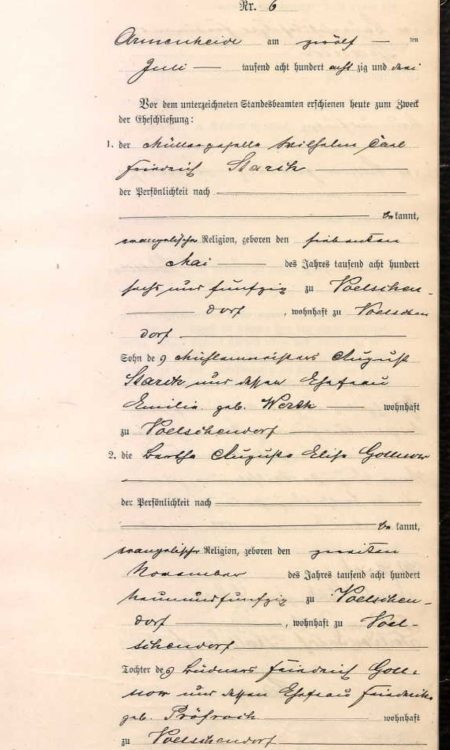 Nr. 6
Armenheide am zwölf ten
Juli tausend acht hundert acht zig und drei
Vor dem unterzeichneten Standesbeamten erschienen heute zum Zweck
der Eheschließung:
1. der Müllergeselle Wilhelm Carl
Friedrich Starck
der Persönlichkeit nach
be kannt,
evangelischer Religion, geboren den siebenten
Mai des Jahres tausend acht hundert
sechs und fünfzig zu Voelschen-
dorf, wohnhaft zu Voelschen
dorf
Sohn des Mühlenmeisters August
Starck und dessen Ehefrau
Emilie geb. Werth wohnhaft
zu Voelschendorf
2. die Bertha Auguste Elise Gollnow
der Persönlichkeit nach
be kannt,
evangelischer Religion, geboren den zweiten
November des Jahres tausend acht hundert
neunundfünfzig zu Voelschen-
dorf, wohnhaft zu Voel-
schendorf
Tochter des Büdners Friedrich Goll-
now und dessen Ehefrau Friederike
geb. Pröfrock wohnhaft
zu Voelschendorf